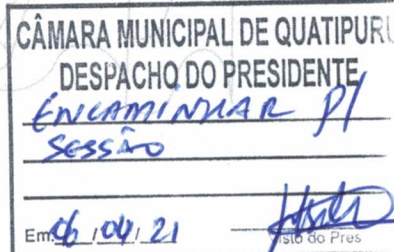 CÂMARA MUNICIPAL DE QUATIPURU
DESPACHO DO PRESIDENTE
ENCAMINHAR P/
SESSÃO
Em: 06 / 04 / 21
Visto do Pres